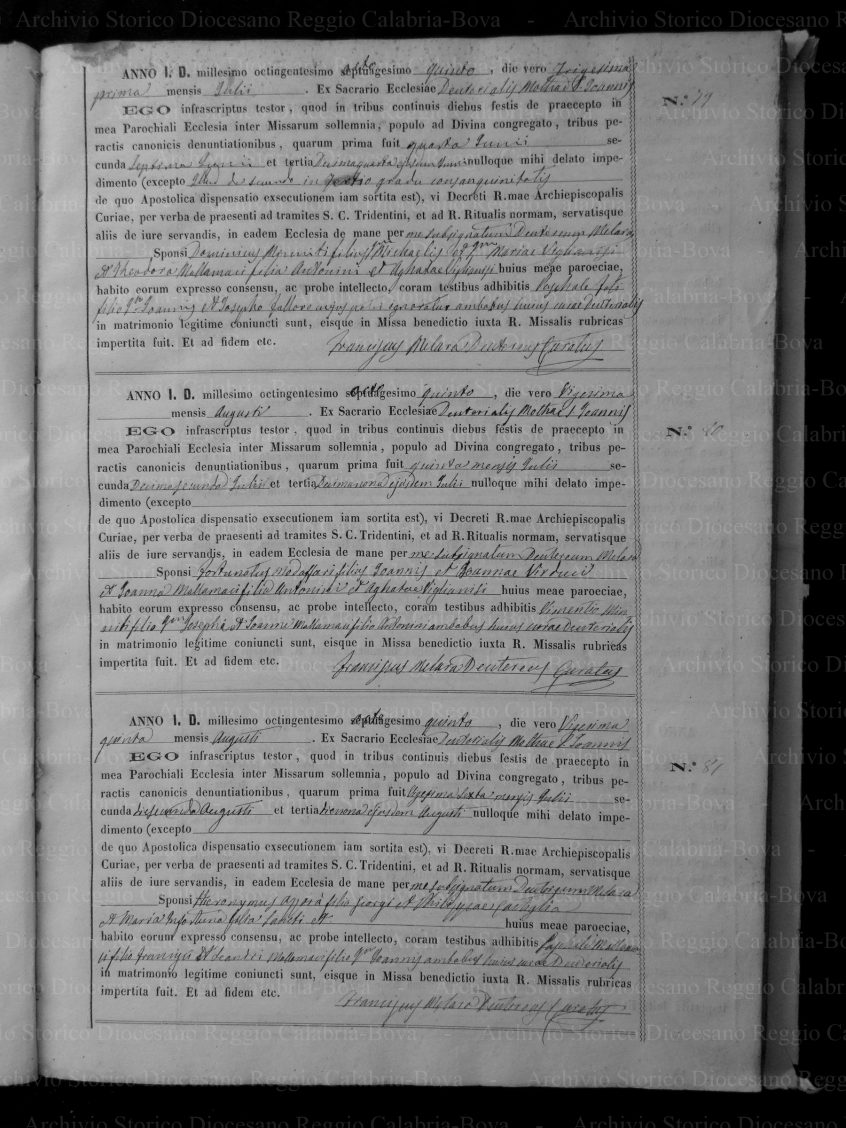 Archivio Storico Diocesano Reggio Calabria-Bova - Archivio Storico Diocesano Reggio Calabria-Bova
ANNO I. D. millesimo octingentesimo octuagesimo quinto, die vero Trigesima
prima mensis Iulii. Ex Sacrario Ecclesiae Deuterialis Mothae S. Joannis
N.º 79
EGO infrascriptus testor, quod in tribus continuis diebus festis de praecepto in
mea Parochiali Ecclesia inter Missarum sollemnia, populo ad Divina congregato, tribus pe-
ractis canonicis denuntiationibus, quarum prima fuit quarta Iunii se-
cunda Septima Iunii et tertia Decimaquarta ejusdem Iunii nulloque mihi delato impe-
dimento (excepto illud de secundo in gradu consanguinitatis
de quo Apostolica dispensatio exsecutionem iam sortita est), vi Decreti R.mae Archiepiscopalis
Curiae, per verba de praesenti ad tramites S. C. Tridentini, et ad R. Ritualis normam, servatisque
aliis de iure servandis, in eadem Ecclesia de mane per me subsignatum Deutereum Melara
Sponsi Dominicus filius Michaelis et q.m Mariae
et Theodora Mallamaci filia Antonini et Agathae huius meae paroeciae,
habito eorum expresso consensu, ac probe intellecto, coram testibus adhibitis Paschale
filio q.m Joannis et Josepho ambobus huius curae Deuterialis
in matrimonio legitime coniuncti sunt, eisque in Missa benedictio iuxta R. Missalis rubricas
impertita fuit. Et ad fidem etc. Franciscus Melara Deutereus Curatus
ANNO I. D. millesimo octingentesimo octuagesimo quinto, die vero Vigesima
mensis Augusti. Ex Sacrario Ecclesiae Deuterialis Mothae S. Joannis
N.º 80
EGO infrascriptus testor, quod in tribus continuis diebus festis de praecepto in
mea Parochiali Ecclesia inter Missarum sollemnia, populo ad Divina congregato, tribus pe-
ractis canonicis denuntiationibus, quarum prima fuit quinta mensis Iulii se-
cunda Decimasecunda Iulii et tertia Decimanona ejusdem Iulii nulloque mihi delato impe-
dimento (excepto
de quo Apostolica dispensatio exsecutionem iam sortita est), vi Decreti R.mae Archiepiscopalis
Curiae, per verba de praesenti ad tramites S. C. Tridentini, et ad R. Ritualis normam, servatisque
aliis de iure servandis, in eadem Ecclesia de mane per me subsignatum Deutereum Melara
Sponsi Fortunatus filius Joannis et Joannae Verduci
et Joanna Mallamaci filia Antonini et Agathae huius meae paroeciae,
habito eorum expresso consensu, ac probe intellecto, coram testibus adhibitis Vincentio
filio q.m Josephi et Joanne Mallamaci filio Antonini ambobus huius curae Deuterialis
in matrimonio legitime coniuncti sunt, eisque in Missa benedictio iuxta R. Missalis rubricas
impertita fuit. Et ad fidem etc. Franciscus Melara Deutereus Curatus
ANNO I. D. millesimo octingentesimo octuagesimo quinto, die vero Vigesima
quinta mensis Augusti. Ex Sacrario Ecclesiae Deuterialis Mothae S. Joannis
N.º 81
EGO infrascriptus testor, quod in tribus continuis diebus festis de praecepto in
mea Parochiali Ecclesia inter Missarum sollemnia, populo ad Divina congregato, tribus pe-
ractis canonicis denuntiationibus, quarum prima fuit sexta mensis Iulii se-
cunda die secunda Augusti et tertia die nona ejusdem Augusti nulloque mihi delato impe-
dimento (excepto
de quo Apostolica dispensatio exsecutionem iam sortita est), vi Decreti R.mae Archiepiscopalis
Curiae, per verba de praesenti ad tramites S. C. Tridentini, et ad R. Ritualis normam, servatisque
aliis de iure servandis, in eadem Ecclesia de mane per me subsignatum Deutereum Melara
Sponsi Hieronymus filio et
et Maria filia Sancti et huius meae paroeciae,
habito eorum expresso consensu, ac probe intellecto, coram testibus adhibitis Paschale
filio Francisci et Mallamaci filio q.m Joannis ambobus huius curae Deuterialis
in matrimonio legitime coniuncti sunt, eisque in Missa benedictio iuxta R. Missalis rubricas
impertita fuit. Et ad fidem etc. Franciscus Melara Deutereus Curatus
Archivio Storico Diocesano Reggio Calabria-Bova - Archivio Storico Diocesano Reggio